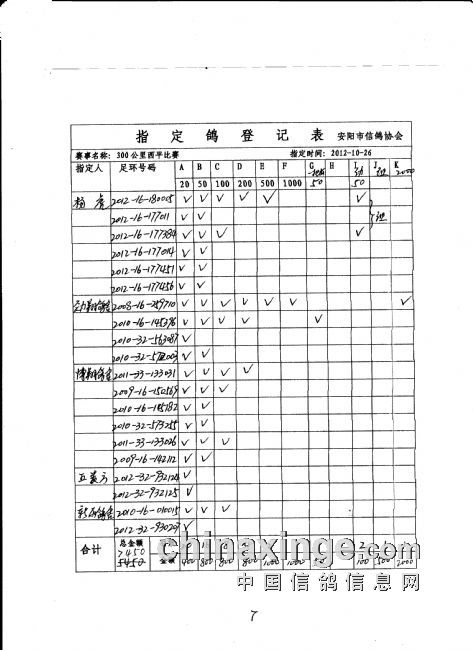 指定鸽登记表 安阳市信鸽协会
赛事名称：300公里西平比赛 指定时间：2012-10-26
指定人 足环号码 A B C D E F G H I J K
20 50 100 200 500 1000 50 50 2000
2012-16-180015 √ √ √ √ √ √
2012-16-177011 √ √
2012-16-177384 √ √ √ √
2012-16-177014 √ √
2012-16-177451 √ √
2012-16-177456 √ √
2008-16-259710 √ √ √ √ √ √ √
2010-16-145396 √ √ √ √ √
2010-32-563087 √
2010-32-003 √ √
2011-33-133031 √ √ √ √
2009-16-150569 √ √ √
2010-16-185182 √ √
2010-32-573255 √ √
2011-33-133026 √ √ √
2009-16-142112 √ √
2012-32-932124 √
2012-32-932125 √
2010-16-010015 √ √ √
2012-32-930209 √
合计 总金额
7450
5450 金额 400 800 800 800 1000 1000 50 100 500 2000
chinaxinge.com
中国信鸽信息网
7